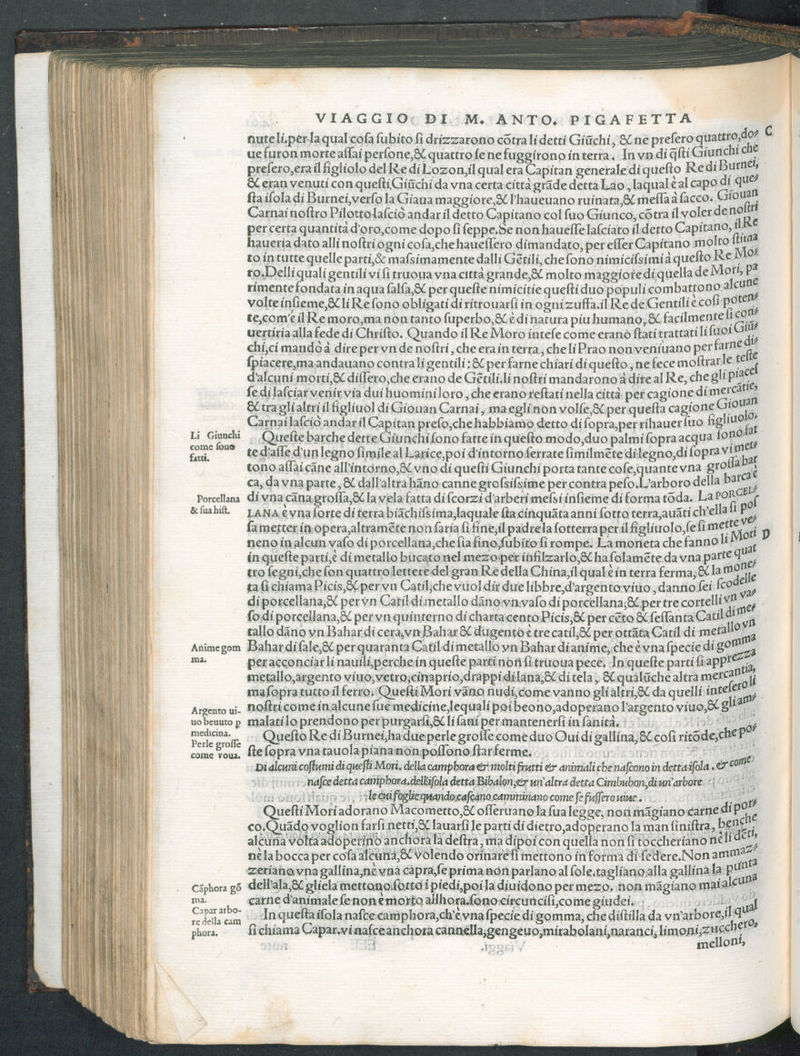 VIAGGIO DI M. ANTO. PIGAFETTA
nute li, per la qual cosa subito si drizzarono cõtra li detti Giũchi, & ne presero quattro, do⸗ C
ue furon morte assai persone, & quattro se ne fuggirono in terra. In vn di q̃sti Giunchi che
presero, era il figliolo del Re di Lozon, il qual era Capitan generale di questo Re di Burnei,
& eran venuti con questi Giũchi da vna certa città grãde detta Lao, laqual è al capo di que⸗
sta isola di Burnei, verso la Giaua maggiore, & l'haueuano ruinata, & messa à sacco. Giouan
Carnai nostro Pilotto lasciò andar il detto Capitano col suo Giunco, cõtra il voler de nostri
per certa quantità d'oro, come dopo si seppe. Se non hauesse lasciato il detto Capitano, il Re
haueria dato alli nostri ogni cosa, che hauessero dimandato, per esser Capitano molto stima
to in tutte quelle parti, & massimamente dalli Gẽtili, che sono nimicissimi à questo Re Mo⸗
ro. Delli quali gentili vi si truoua vna città grande, & molto maggiore di quella de Mori, pa
rimente fondata in aqua salsa, & per queste nimicitie questi duo populi combattono alcune
volte insieme, & li Re sono obligati di ritrouarsi in ogni zuffa. il Re de Gentili è cosi poten⸗
te, com'è il Re moro, ma non tanto superbo, & è di natura piu humano, & facilmente si con⸗
uertiria alla fede di Christo. Quando il Re Moro intese come erano stati trattati li suoi Giũ⸗
chi, ci mandò à dire per vn de nostri, che era in terra, che li Prao non veniuano per farne di⸗
spiacere, ma andauano contra li gentili: & per farne chiari di questo, ne fece mostrar le teste
d'alcuni morti, & dissero, che erano de Gẽtili. li nostri mandarono à dire al Re, che gli piaces
se di lasciar venir via dui huomini loro, che erano restati nella città per cagione di mercãtie,
& tra gli altri il figliuol di Giouan Carnai, ma egli non volse, & per questa cagione Giouan
Carnai lasciò andar il Capitan preso, che habbiamo detto di sopra, per rihauer suo figliuolo.
Li Giunchi come sono fatti.
Queste barche dette Giunchi son fatte in questo modo, duo palmi sopra acqua sono fat
te d'asse d'un legno simile al Larice, poi d'intorno serrate similmẽte di legno, di sopra vi met⸗
tono assai cãne all'intorno, & vno di questi Giunchi porta tante cose, quante vna grossa bar
ca, da vna parte, & dall'altra hãno canne grossissime per contra peso. L'arboro della barca è
Porcellana & sua hist.
di vna cãna grossa, & la vela fatta di scorzi d'arberi messi insieme di forma tõda. La PORCEL⸗
LANA è vna sorte di terra biãchissima, laquale sta cinquãta anni sotto terra, auãti ch'ella si pos
sa metter in opera, altramẽte non saria si fine, il padre la sotterra per il figliuolo, se si mette ve⸗
neno in alcun vaso di porcellana, che sia fino, subito si rompe. La moneta che fanno li Mori D
in queste parti, è di metallo bucato nel mezo per infilzarlo, & ha solamẽte da vna parte quat
tro segni, che son quattro lettere del gran Re della China, il qual è in terra ferma, & la mone⸗
ta si chiama Picis, & per vn Catil, che vuol dir due libbre, d'argento viuo, danno sei scodelle
di porcellana, & per vn Catil di metallo dãno vn vaso di porcellana, & per tre cortelli vn va⸗
so di porcellana, & per vn quinterno di charta cento Picis, & per cẽto & sessanta Catil di me⸗
tallo dãno vn Bahar di cera, vn Bahar & dugento è tre catil, & per ottãta Catil di metallo vn
Anime gom ma.
Bahar di sale, & per quaranta Catil di metallo vn Bahar di anime, che è vna specie di gomma
per acconciar li nauili, perche in queste parti non si truoua pece. In queste parti si apprezza
metallo, argento viuo, vetro, cinaprio, drappi di lana, & di tela, & qualũche altra mercantia,
ma sopra tutto il ferro. Questi Mori vãno nudi, come vanno gli altri, & da quelli intesero li
Argento ui⸗ uo beuuto p medicina.
nostri come in alcune sue medicine, lequali poi beono, adoperano l'argento viuo, & gli am⸗
malati lo prendono per purgarsi, & li sani per mantenersi in sanità.
Perle grosse come voua.
Questo Re di Burnei, ha due perle grosse come duo Oui di gallina, & cosi ritõde, che po⸗
ste sopra vna tauola piana non possono star ferme.
Di alcuni costumi di questi Mori. della camphora & molti frutti & animali che nascono in detta isola. & come
nasce detta camphora. dell'isola detta Bibalon, & un'altra detta Cimbubon, di un'arbore
le cui foglie quando cascano, camminano come se fussero uiue.
Questi Mori adorano Macometto, & osseruano la sua legge, non mãgiano carne di por⸗
co. Quãdo voglion farsi netti, & lauarsi le parti di dietro, adoperano la man sinistra, benche
alcuna volta adoperino anchora la destra, ma dipoi con quella non si toccheriano nè li dẽti,
nè la bocca per cosa alcuna, & volendo orinare si mettono in forma di sedere. Non ammaz⸗
zeriano vna gallina, nè vna capra, se prima non parlano al sole. tagliano alla gallina la punta
Cãphora gõ ma.
dell'ala, & gliela mettono sotto i piedi, poi la diuidono per mezo. non mãgiano mai alcuna
carne d'animale se non è morto allhora. sono circuncisi, come giudei.
Capar arbo⸗ re della cam phora.
In questa isola nasce camphora, ch'è vna specie di gomma, che distilla da vn'arbore, il qual
si chiama Capar. vi nasce anchora cannella, gengeuo, mirabolani, naranci, limoni, zucchero,
melloni,